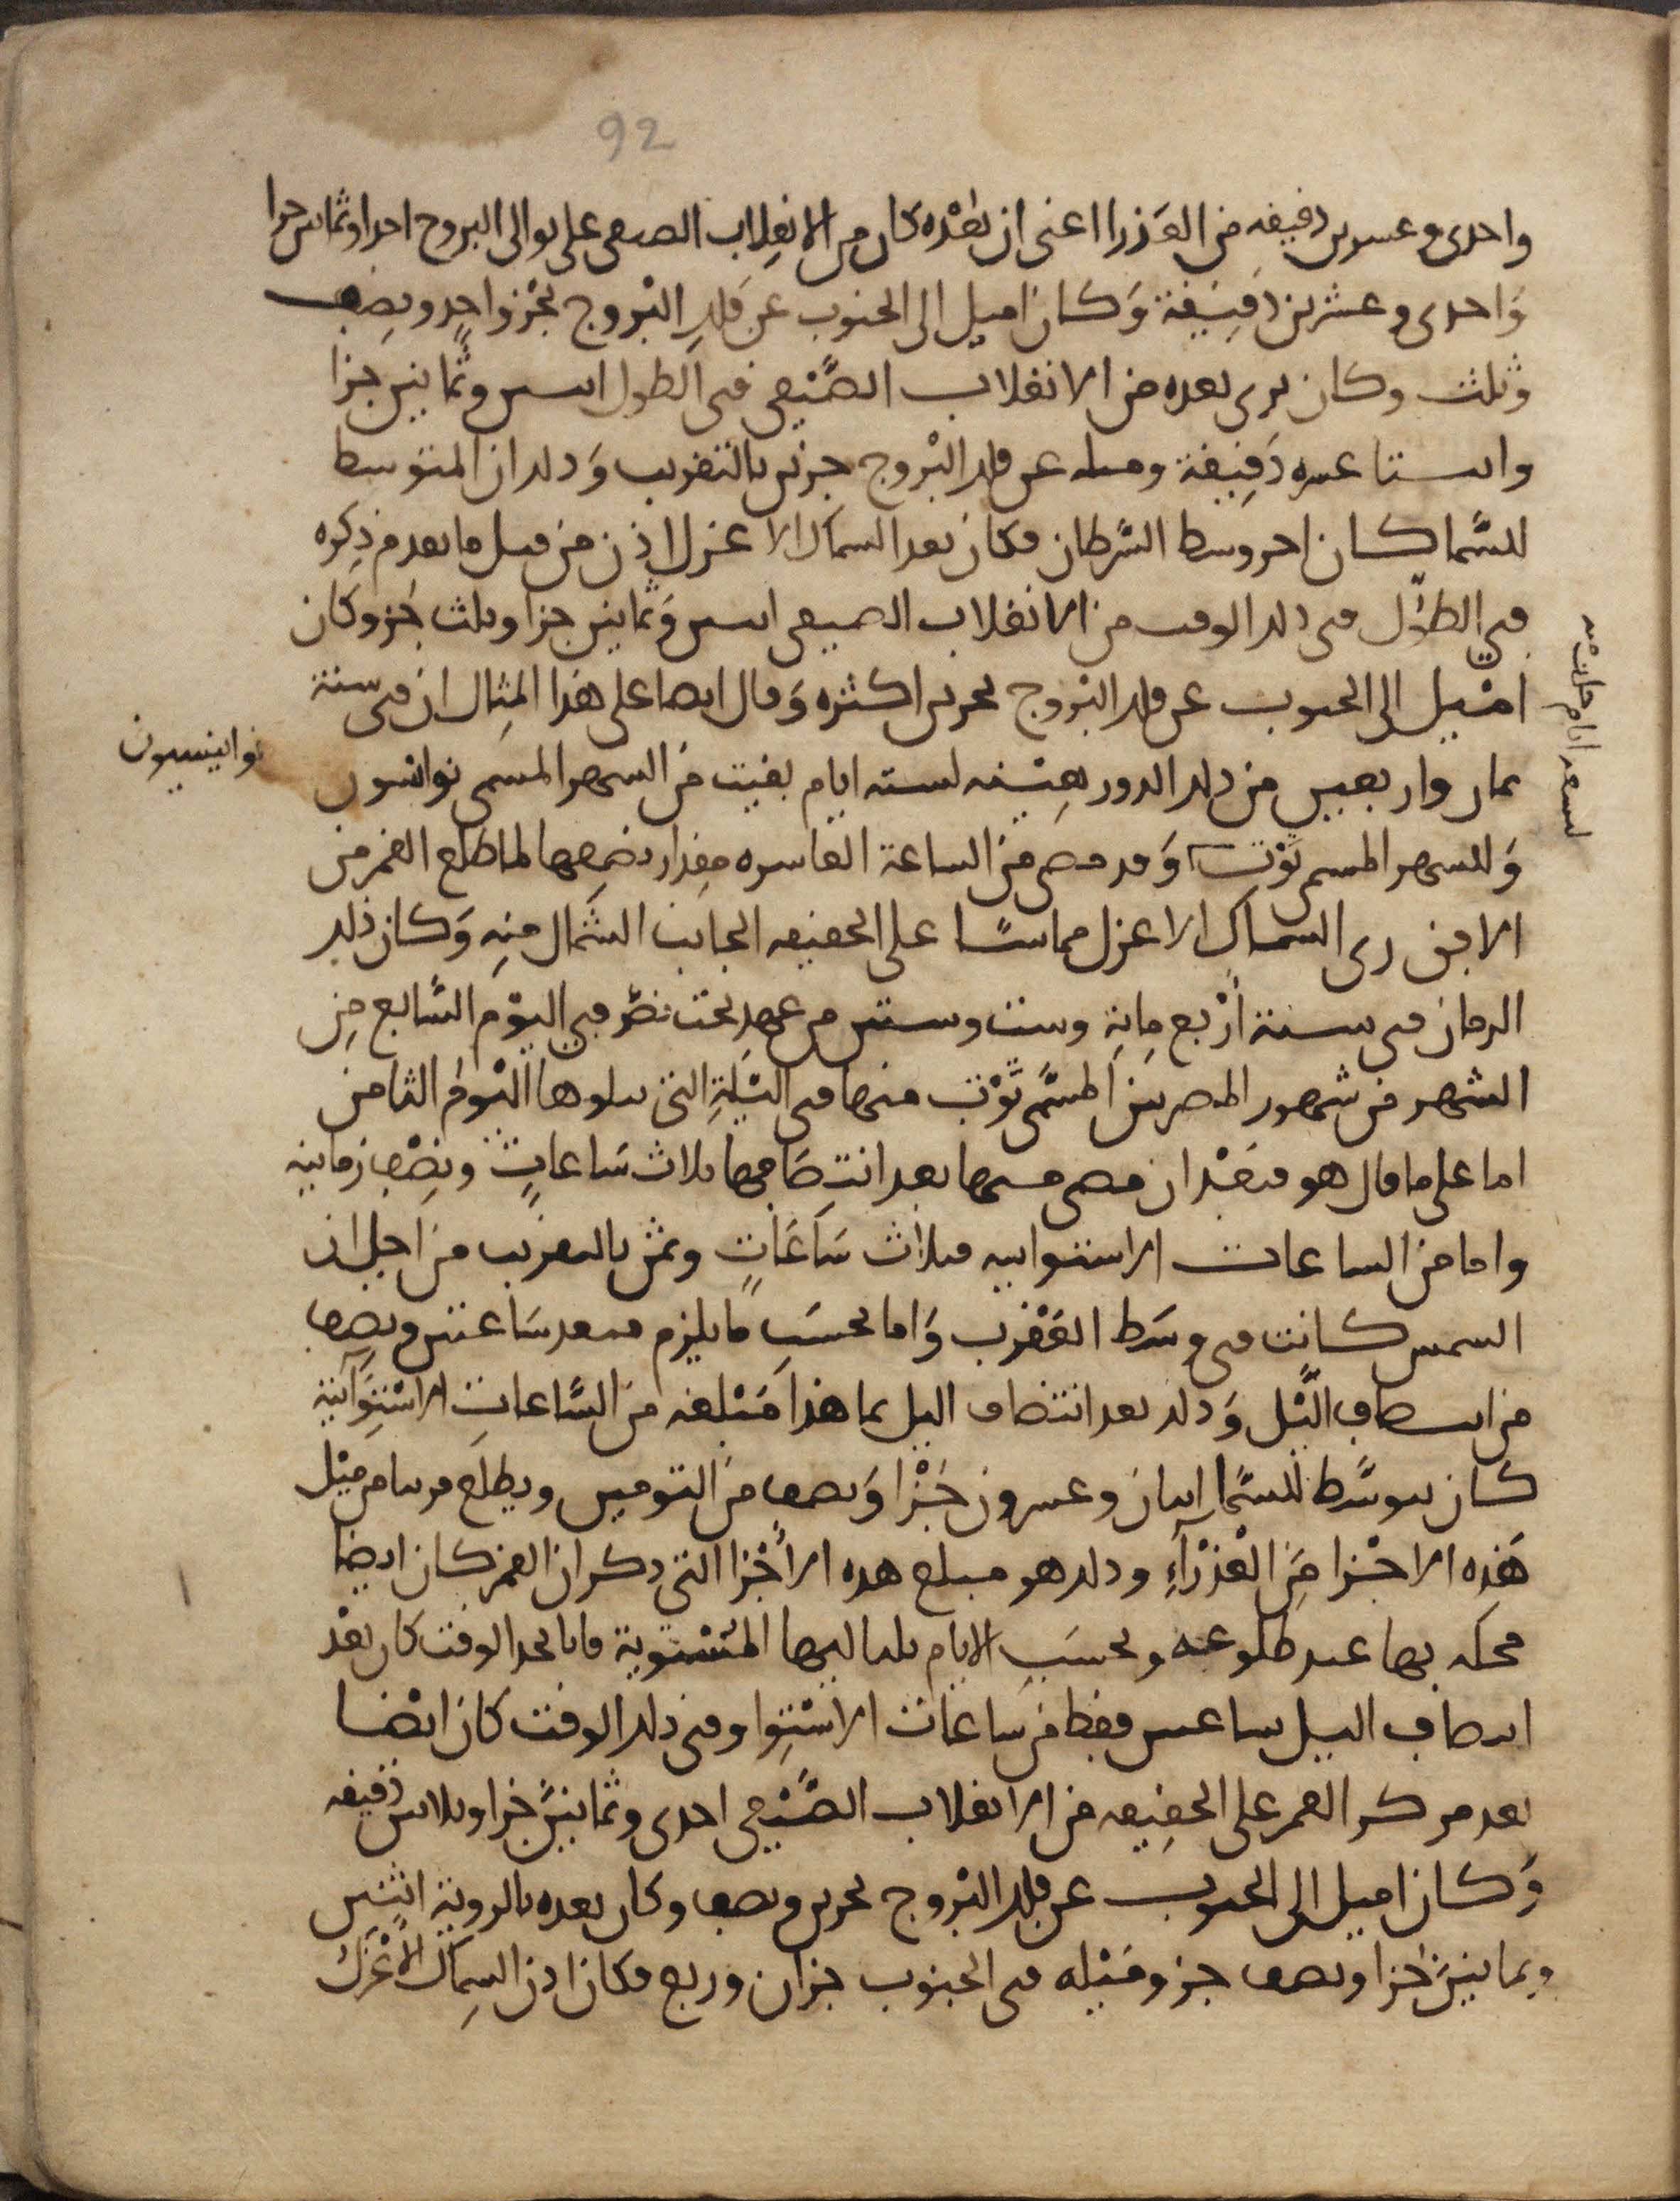 92
واحدى وعشرين دقيقه من العذرا اعنى ان بعده كان من الانقلاب الصيفى على توالى البروج احدا وثمانين جزا
واحدى وعشرين دقيقة وكان اميل الى الجنوب عن فلك البروج بجزو واحد ونصف
وثلث وكان يرى بعده من الانقلاب الصيفى فى الطول اثنين وثمانين جزا
واثنتا عشره دقيقة وميله عن فلك البروج جزئين بالتقريب وذلك ان المتوسط
للسما كان اخر وسط السرطان فكان بعد السماك الاعزل اذن من قبل ما تقدم ذكره
فى الطول فى ذلك الوقت من الانقلاب الصيفى اثنين وثمانين جزا وثلث جزو وكان
اميل الى الجنوب عن فلك البروج بجزئين اكثره وقال ايضا على هذا المثال ان فى سنة
ثمان واربعين من ذلك الدور بعينه لسته ايام بقيت من الشهر المسمى بوانسيون
بوانيبسيون
وللشهر المسمى توت وقد مضى من الساعة العاشره مقدار نصفها لما طلع القمر من
الافق رى السماك الاعزل مماسا على الحقيقه الجانب الشمال منه وكان ذلك
الزمان فى سنة اربع ماية وست وستين من عهد بخت نصر فى اليوم السابع من
الشهر من شهور المصريين المسمى توت منها فى الليلة التى يتلوها اليوم الثامن
اما على ما قال هو فبعد ان مضى منها بعد انتصافها ثلاث ساعات ونصف زمانيه
واما من الساعات الاستوائيه فثلاث ساعات وثمن بالتقريب من اجل ان
الشمس كانت فى وسط العقرب واما بحسب ما يلزم فبعد ساعتين ونصف
من انتصاف الليل وذلك بعد انتصاف اليل بما هذا مبلغه من الساعات الاستوائية
كان يتوسط للسما اثنان وعشرون جزا ونصف من التوميس ويطلع قريبا من مثل
هذه الاجزا من العذراء وذلك هو مبلغ هذه الاجزا التى ذكر ان القمر كان ايضا
محله بها عند طلوعه وبحسب الايام بلياليها المستوية فانا نجد الوقت كان بعد
انتصاف اليل بساعتين فقط من ساعات الاستوا وفى ذلك الوقت كان ايضا
بعد مركز القمر على الحقيقه من الانقلاب الصيفى احدى وثمانين جزا وثلاثين دقيقه
وكان اميل الى الجنوب عن فلك البروج بجزئين ونصف وكان بعده بالروية اثنين
وثمانين جزا ونصف جزو وميله فى الجنوب جزان وربع فكان اذن السماك الاعزل